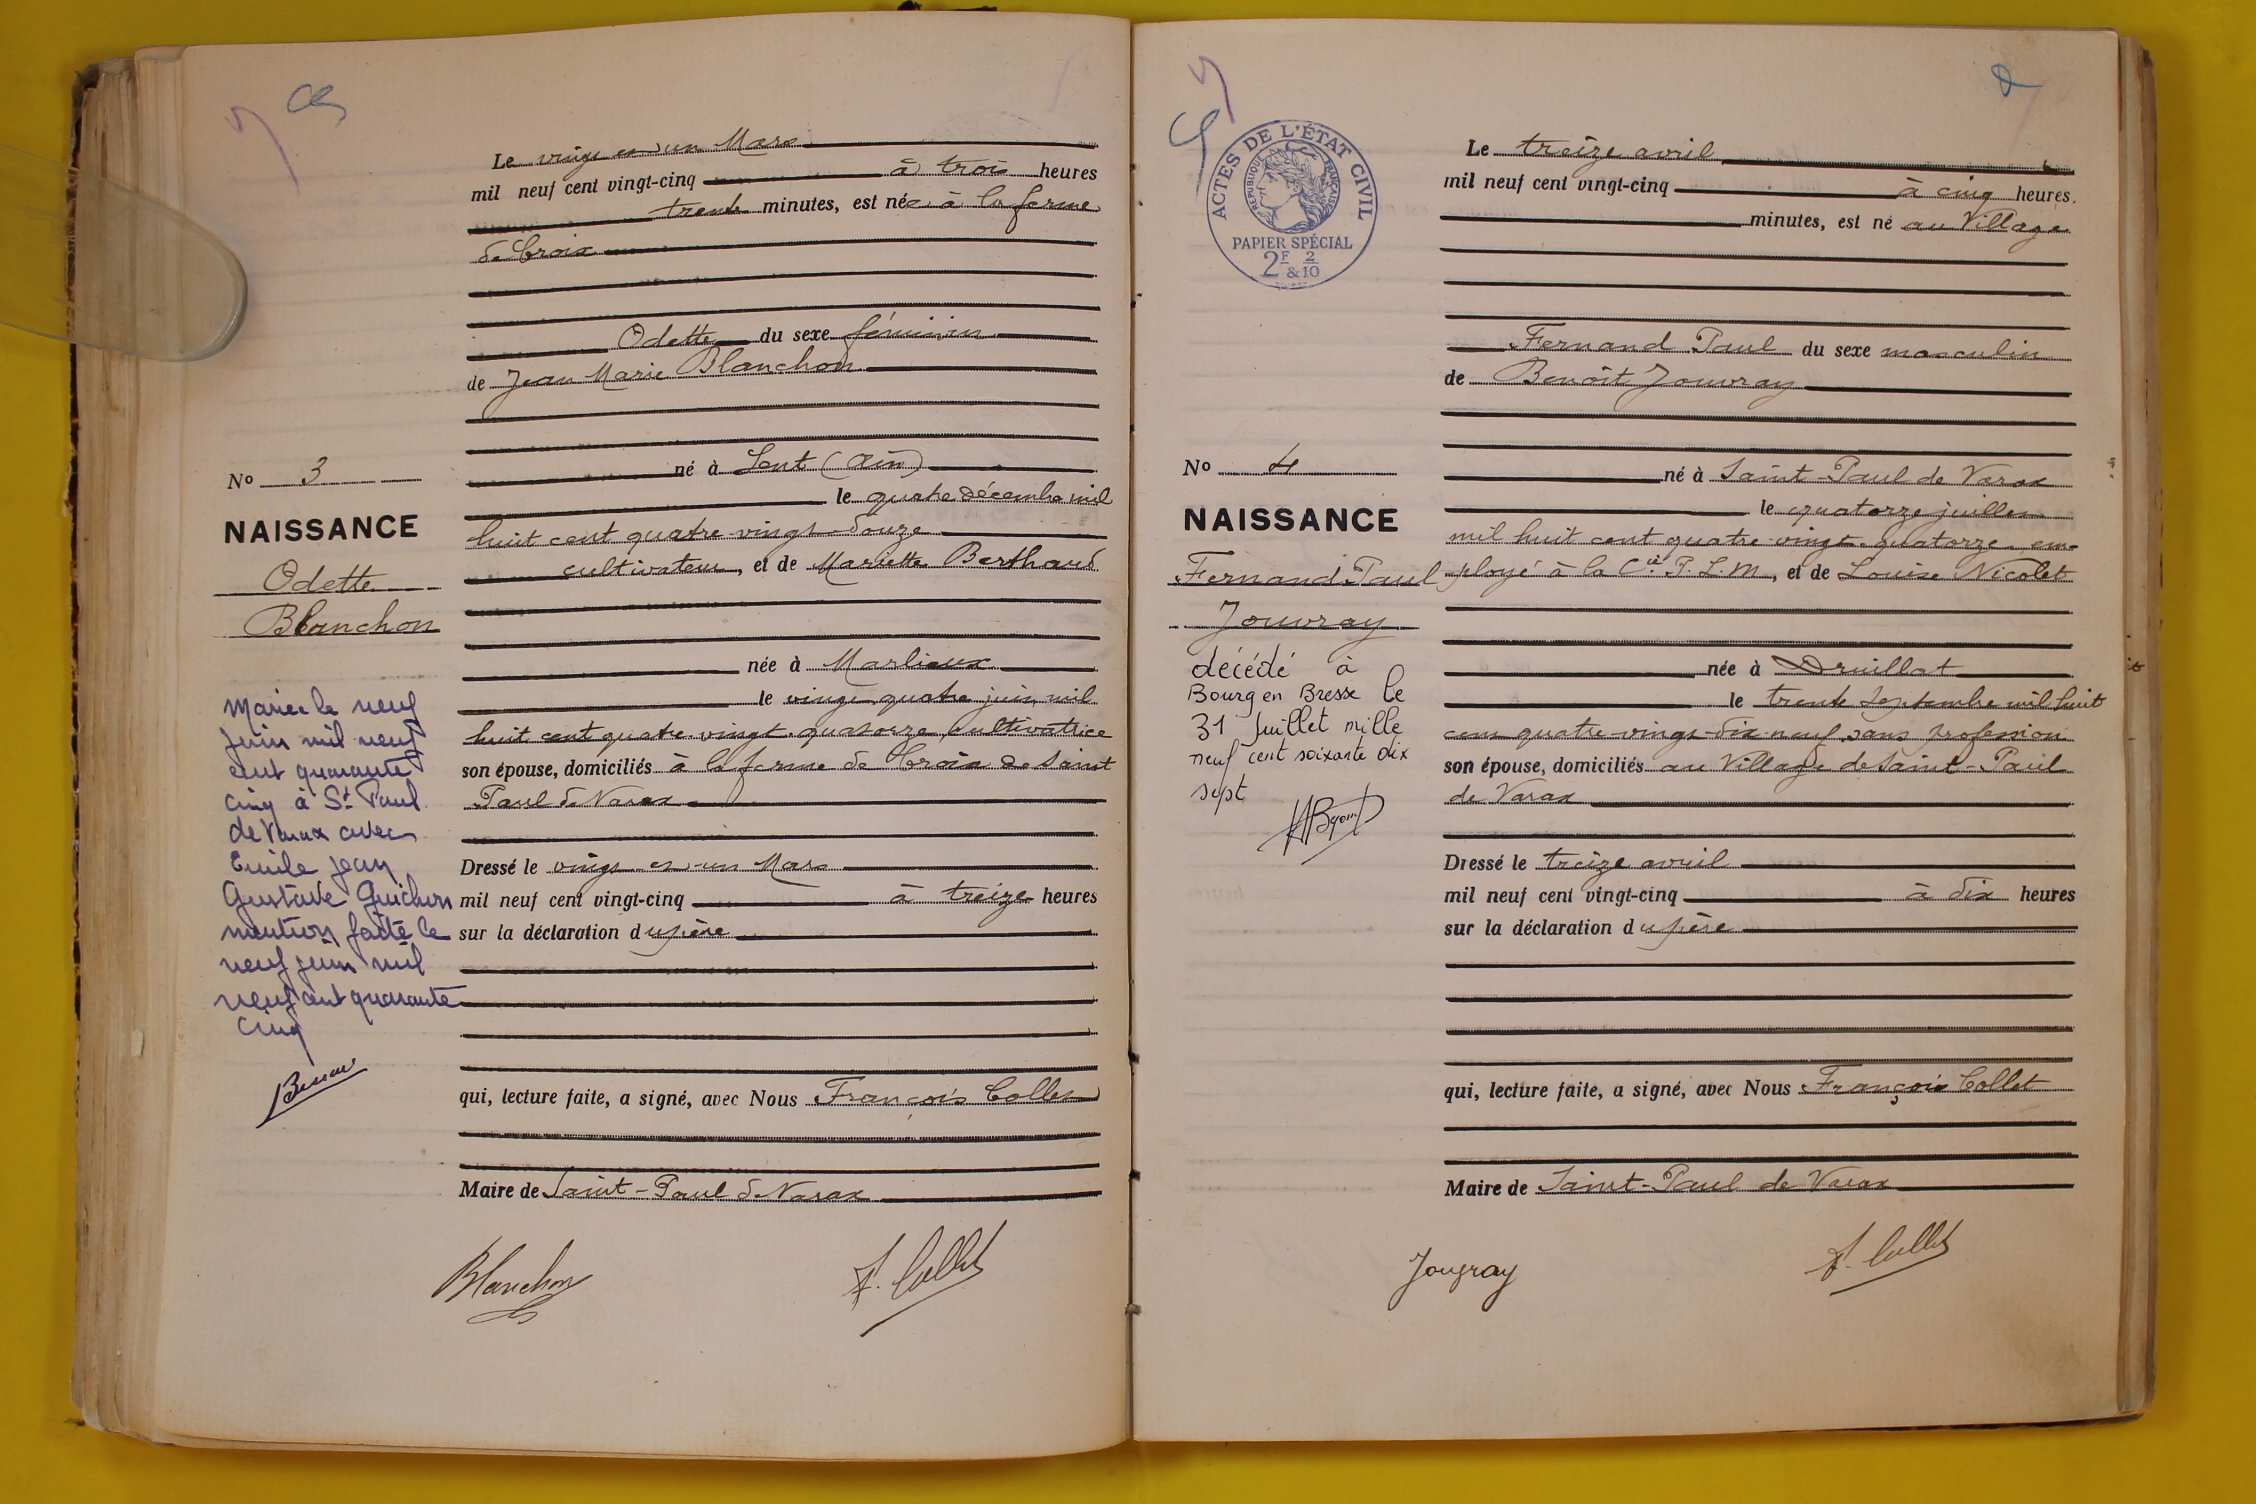 Le vingt et un Mars
mil neuf cent vingt-cinq à trois heures
trente minutes, est née à la ferme
de Croix
Odette du sexe féminin
de Jean Marie Blanchon
né à Lent (Ain)
le quatre décembre mil
huit cent quatre-vingt-douze
cultivateur, et de Mariette Berthaud
née à Marlieux
le vingt quatre juin mil
huit cent quatre-vingt-quatorze cultivatrice
son épouse, domiciliés à la ferme de Croix de Saint
Paul de Varax
Dressé le vingt et un Mars
mil neuf cent vingt-cinq à treize heures
sur la déclaration du père
qui, lecture faite, a signé, avec Nous François Collet
Maire de Saint-Paul de Varax
Blanchon F. Collet
No 3
NAISSANCE
Odette
Blanchon
Mariée le neuf
juin mil neuf
cent quarante
cinq à St Paul
de Varax avec
Emile Jean
Gustave Guichon
mention faite le
neuf juin mil
neuf cent quarante
cinq
ACTES DE L'ÉTAT CIVIL
RÉPUBLIQUE FRANÇAISE
PAPIER SPÉCIAL
2F 2
&10
Le treize avril
mil neuf cent vingt-cinq à cinq heures
minutes, est né au Village
Fernand Paul du sexe masculin
de Benoît Jouvray
né à Saint-Paul de Varax
le quatorze juillet
mil huit cent quatre-vingt-quatorze em-
ployé à la Cie P.L.M., et de Louise Nicolet
née à Druillat
le trente septembre mil huit
cent quatre-vingt-dix-neuf sans profession
son épouse, domiciliés au Village de Saint-Paul
de Varax
Dressé le treize avril
mil neuf cent vingt-cinq à dix heures
sur la déclaration du père
qui, lecture faite, a signé, avec Nous François Collet
Maire de Saint-Paul de Varax
Jouvray F. Collet
No 4
NAISSANCE
Fernand Paul
Jouvray
décédé à
Bourg en Bresse le
31 Juillet mille
neuf cent soixante dix
sept